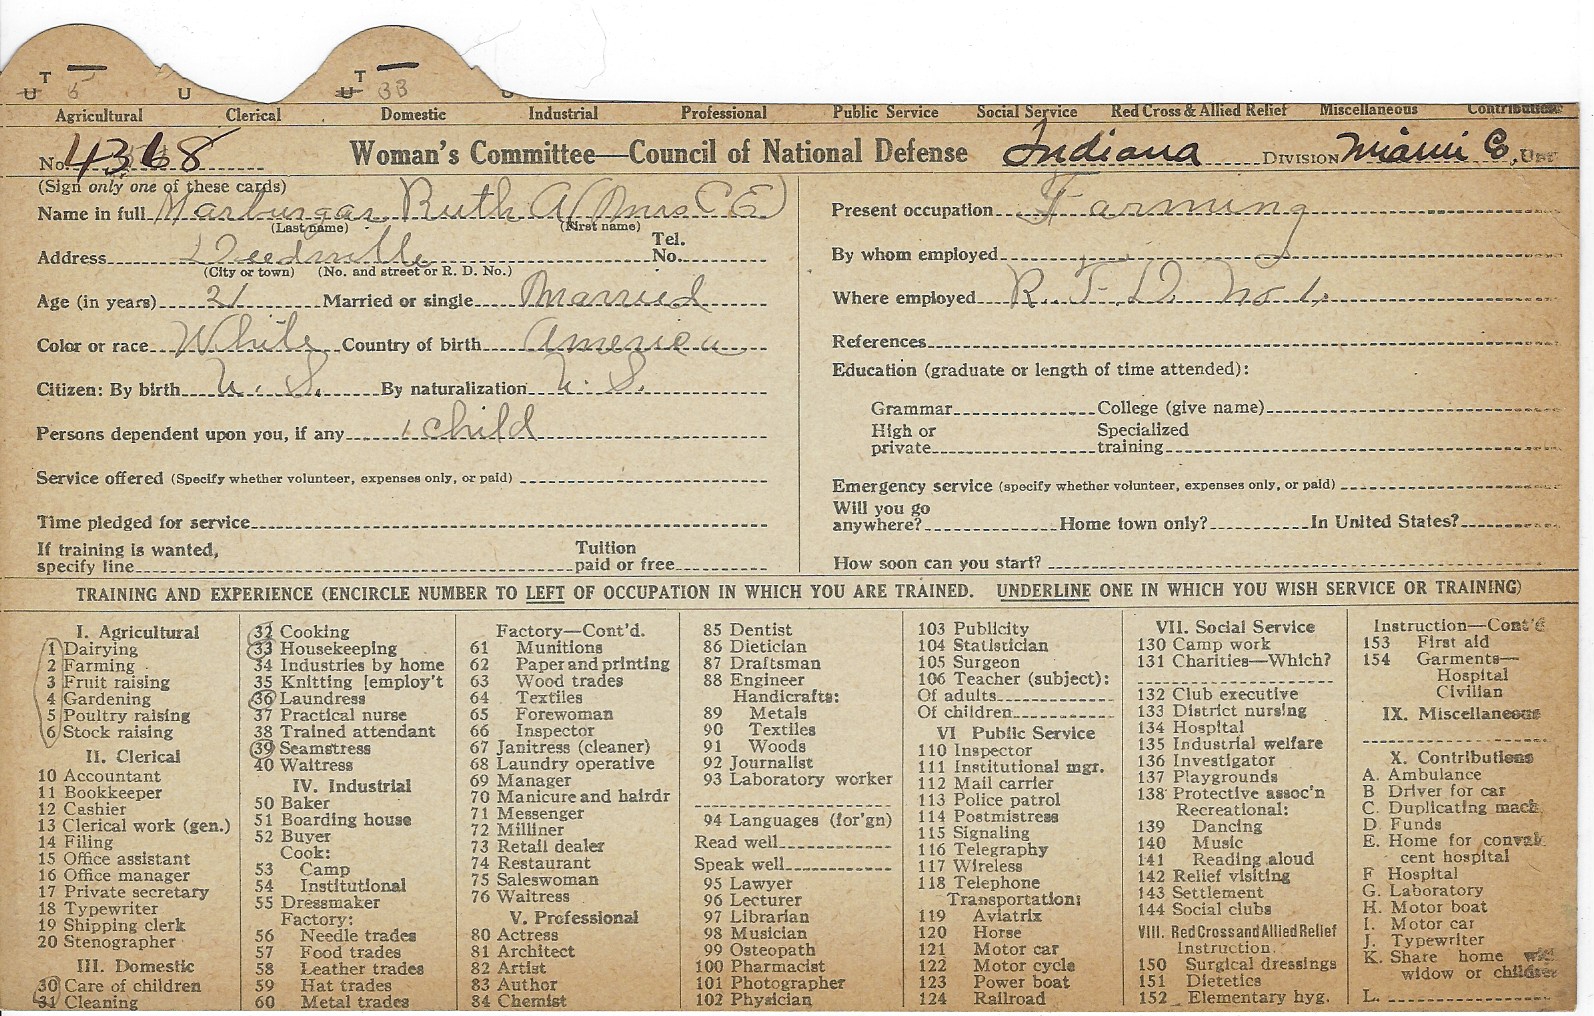 T T
U 6 U U 33 U
Agricultural Clerical Domestic Industrial Professional Public Service Social Service Red Cross & Allied Relief Miscellaneous Contributions
No. 4368 Woman's Committee—Council of National Defense Indiana DIVISION Miami Co. Unit
(Sign only one of these cards)
Name in full Marburgar Ruth A (Mrs C E)
(Last name) (First name)
Address Deedsville Tel. No.
(City or town) (No. and street or R. D. No.)
Age (in years) 21 Married or single Married
Color or race White Country of birth America
Citizen: By birth U. S. By naturalization U. S.
Persons dependent upon you, if any 1 child
Service offered (Specify whether volunteer, expenses only, or paid)
Time pledged for service
If training is wanted,
specify line Tuition paid or free
Present occupation Farming
By whom employed
Where employed R. F. D. No 1.
References
Education (graduate or length of time attended):
Grammar College (give name)
High or private Specialized training
Emergency service (specify whether volunteer, expenses only, or paid)
Will you go
anywhere? Home town only? In United States?
How soon can you start?
TRAINING AND EXPERIENCE (ENCIRCLE NUMBER TO LEFT OF OCCUPATION IN WHICH YOU ARE TRAINED. UNDERLINE ONE IN WHICH YOU WISH SERVICE OR TRAINING)
I. Agricultural
1 Dairying
2 Farming
3 Fruit raising
4 Gardening
5 Poultry raising
6 Stock raising
II. Clerical
10 Accountant
11 Bookkeeper
12 Cashier
13 Clerical work (gen.)
14 Filing
15 Office assistant
16 Office manager
17 Private secretary
18 Typewriter
19 Shipping clerk
20 Stenographer
III. Domestic
30 Care of children
31 Cleaning
32 Cooking
33 Housekeeping
34 Industries by home
35 Knitting [employ't
36 Laundress
37 Practical nurse
38 Trained attendant
39 Seamstress
40 Waitress
IV. Industrial
50 Baker
51 Boarding house
52 Buyer
Cook:
53 Camp
54 Institutional
55 Dressmaker
Factory:
56 Needle trades
57 Food trades
58 Leather trades
59 Hat trades
60 Metal trades
Factory—Cont'd.
61 Munitions
62 Paper and printing
63 Wood trades
64 Textiles
65 Forewoman
66 Inspector
67 Janitress (cleaner)
68 Laundry operative
69 Manager
70 Manicure and hairdr
71 Messenger
72 Milliner
73 Retail dealer
74 Restaurant
75 Saleswoman
76 Waitress
V. Professional
80 Actress
81 Architect
82 Artist
83 Author
84 Chemist
85 Dentist
86 Dietician
87 Draftsman
88 Engineer
Handicrafts:
89 Metals
90 Textiles
91 Woods
92 Journalist
93 Laboratory worker
94 Languages (for'gn)
Read well
Speak well
95 Lawyer
96 Lecturer
97 Librarian
98 Musician
99 Osteopath
100 Pharmacist
101 Photographer
102 Physician
103 Publicity
104 Statistician
105 Surgeon
106 Teacher (subject):
Of adults
Of children
VI Public Service
110 Inspector
111 Institutional mgr.
112 Mail carrier
113 Police patrol
114 Postmistress
115 Signaling
116 Telegraphy
117 Wireless
118 Telephone
Transportation:
119 Aviatrix
120 Horse
121 Motor car
122 Motor cycle
123 Power boat
124 Railroad
VII. Social Service
130 Camp work
131 Charities—Which?
132 Club executive
133 District nursing
134 Hospital
135 Industrial welfare
136 Investigator
137 Playgrounds
138 Protective assoc'n
Recreational:
139 Dancing
140 Music
141 Reading aloud
142 Relief visiting
143 Settlement
144 Social clubs
VIII. Red Cross and Allied Relief
Instruction.
150 Surgical dressings
151 Dietetics
152 Elementary hyg.
Instruction—Cont'd
153 First aid
154 Garments—
Hospital
Civilian
IX. Miscellaneous
X. Contributions
A. Ambulance
B Driver for car
C. Duplicating mach.
D Funds
E. Home for conval
cent hospital
F Hospital
G. Laboratory
H. Motor boat
I. Motor car
J. Typewriter
K. Share home with
widow or children
L.